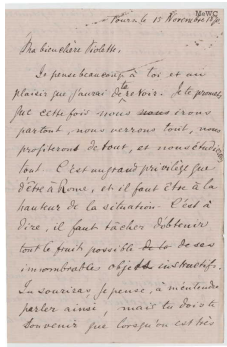 Tours le 15 Novembre
Ma bien chère Violette,
Je pense beaucoup à toi et au
plaisir que j'aurai de te revoir. Je te promets
que cette fois nous nous irons
partout, nous verrons tout, nous
profiterons de tout, et nous étudierons
tout. C'est un grand privilège que
d'être à Rome, et il faut être à la
hauteur de la situation. C'est à
dire, il faut tâcher d'obtenir
tout le fruit possible de ses
innombrable objets instructifs.
Tu souriras je pense, à m'entendre
parler ainsi, mais tu dois te
souvenir que lorsqu'on est très